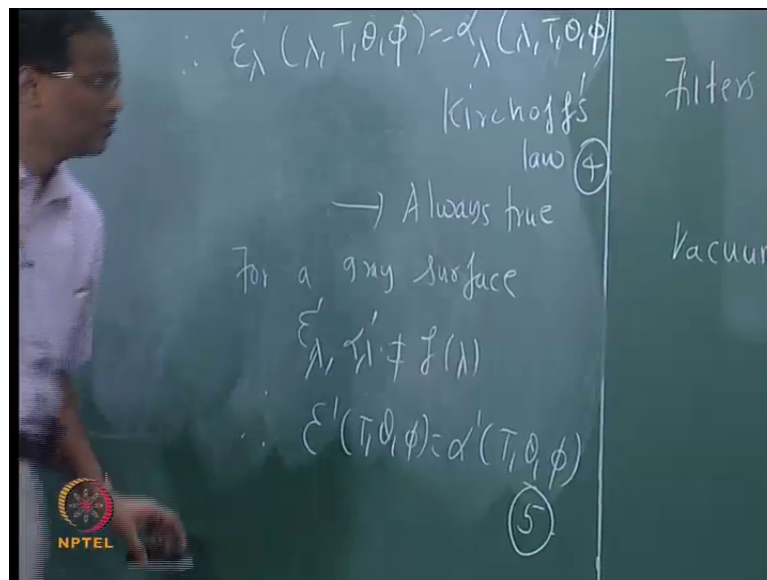 ∴ ελ'(λ,T,θ,φ) = αλ'(λ,T,θ,φ)
Kirchoff's
law ④
→ Always true
For a gray surface
ελ', αλ' ≠ f(λ)
∴ ε'(T,θ,φ) = α'(T,θ,φ)
⑤
Filters
Vacuum
NPTEL